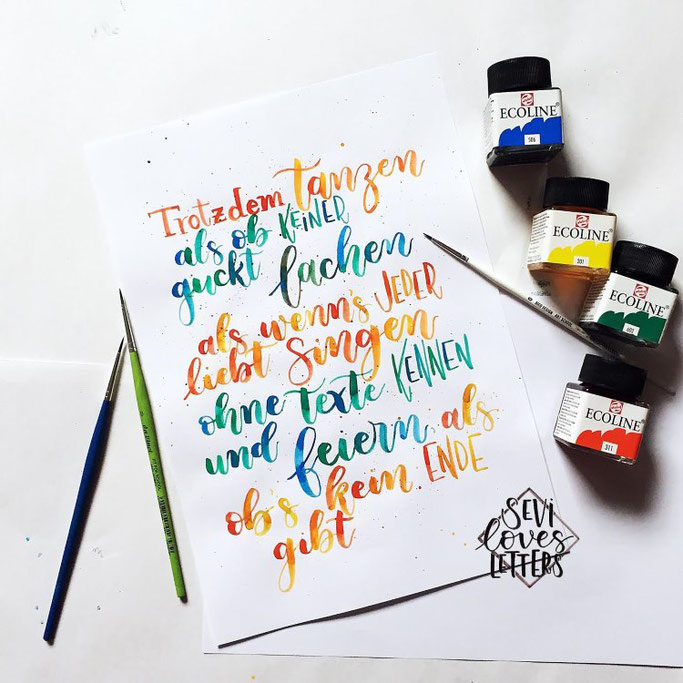 Trotzdem tanzen
als ob KEINER
guckt lachen
als wenn's JEDER
liebt Singen
ohne texte KENNEN
und feiern, als
ob's kein ENDE
gibt
ECOLINE
506
ECOLINE
201
ECOLINE
ECOLINE
311
SEVI
loves
LETTERS